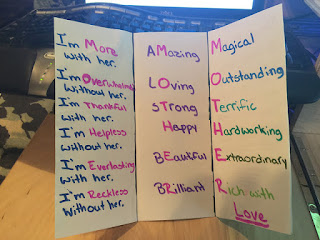 I'm More
with her.
I'm Overwhelmed
without her.
I'm Thankful
with her.
I'm Helpless
without her.
I'm Everlasting
with her.
I'm Reckless
without her.
AMazing
LOving
sTrong
Happy
BEautiful
BRilliant
Magical
Outstanding
Terrific
Hardworking
Extraordinary
Rich with
Love